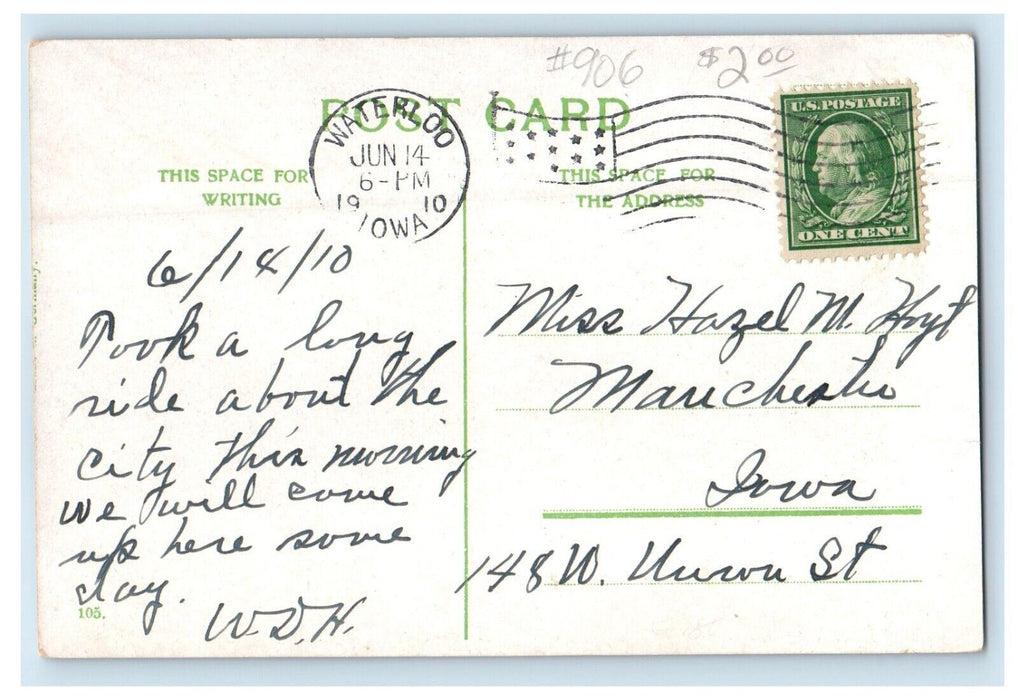 #906 $2.00
POST CARD
WATERLOO
JUN 14
6-PM
19 10
IOWA
U.S. POSTAGE
ONE CENT
THIS SPACE FOR
WRITING
THIS SPACE FOR
THE ADDRESS
Germany.
6/14/10
Took a long
ride about the
city this morning
we will come
up here some
day.
W.D.H.
105.
Miss Hazel M. Hoyt
Manchester
Iowa
148 W. Union St